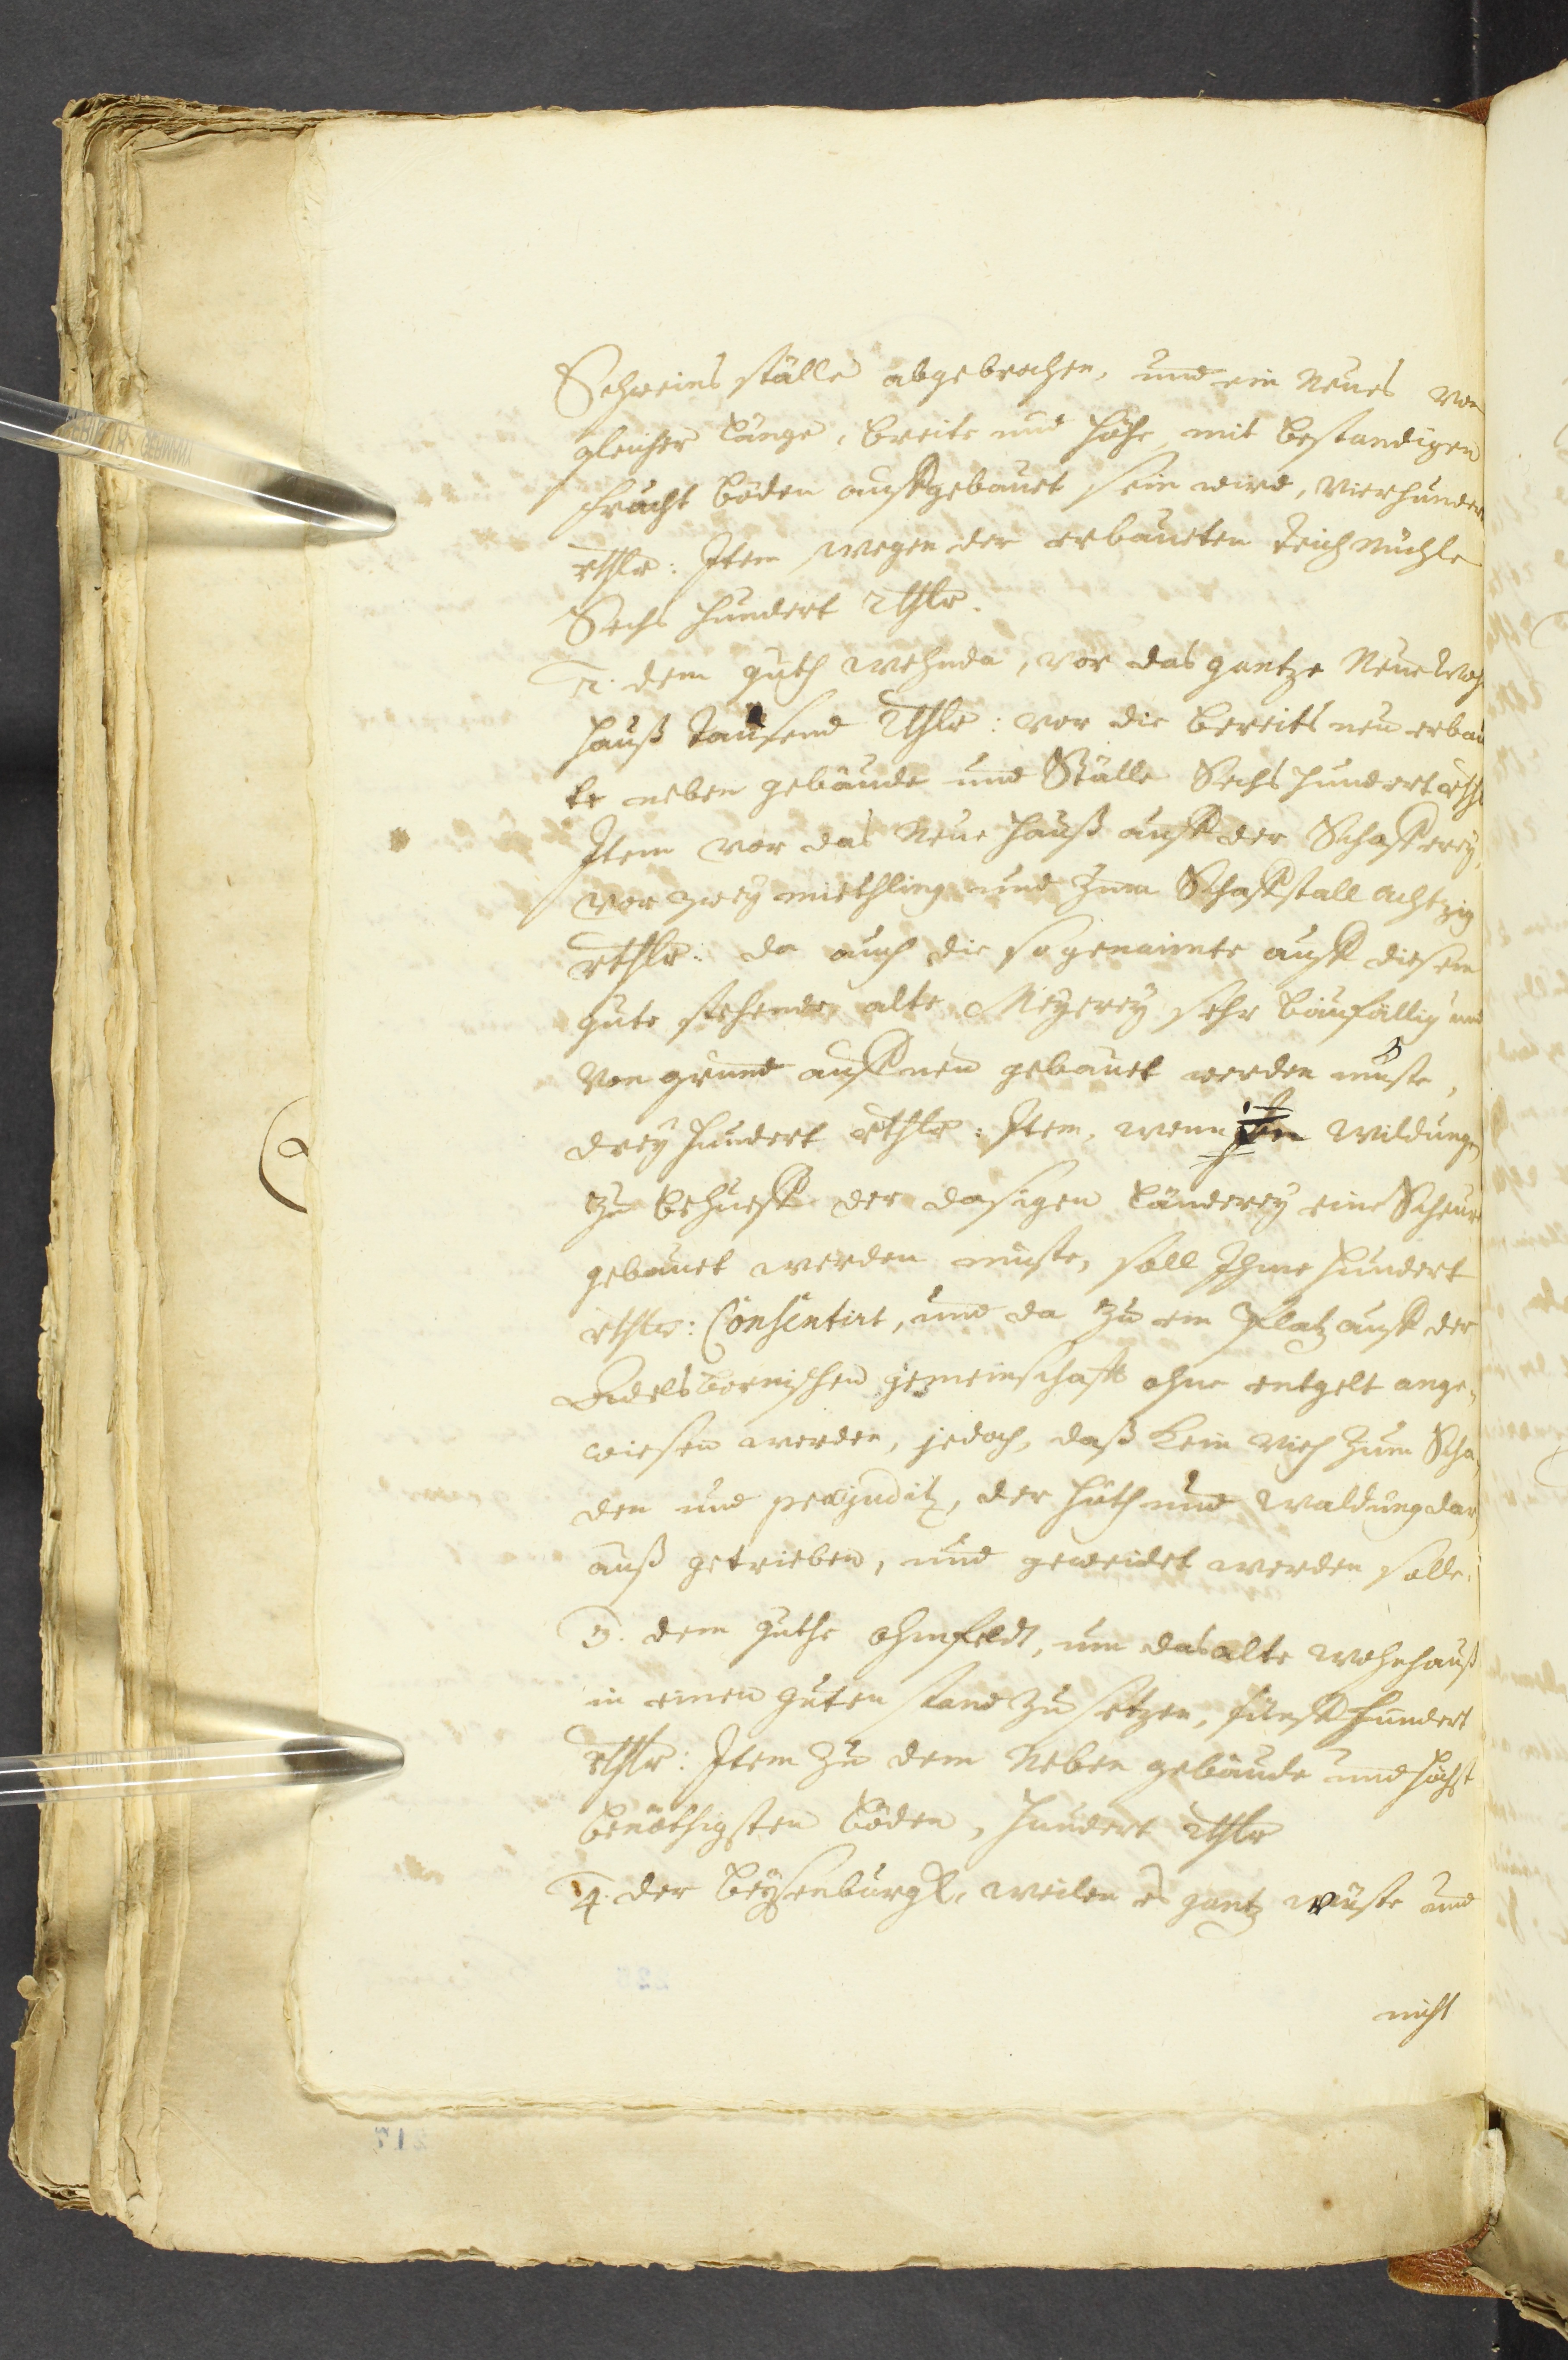 Schweins ställe abgebrochen, und ein Neues von
gleicher länge, breite und höhe, mit bestandigen
frucht böden auffgebauet sein wird, vierhundert
rthlr: Item wegen der erbaueten Teich Mühle
Sechs hundert Rthlr.
2. dem guth wehnde, vor das gantze Neue Woh
hauß Tausend Rthlr: vor die bereits neu erbau
te neben gebäude und Ställe Sechs hundert rth
Item vor das Neue hauß auff der Schafferey,
vor zwey miethling und zum Schaffstall achtzig
rthlr: da auch die so genannte auff diesem
gute stehende alte Meyerey sehr baufällig und
von grund auff neu gebauet werden müste,
drey hundert rthlr: Item, wenn in Wildungen
zu behueff der dasigen länderey eine Scheure
gebauet werden müste, soll Ihme hundert
rthlr: Consentirt, und da zu ein Platz auff der
Adelsbornischen gemeinschafft ohne entgelt ange,
wiesen werden, jedoch, daß kein vieh zum Scha,
den und praejuditz, der huth und waldung dar,
auß getrieben, und geweidet werden solle.
3. dem guthe ohmfeldt, um das alte wohnhauß
in einen guten stand zu setzen, fünff hundert
rthlr: Item zu dem Neben gebäude und höchst
benöthigsten böden, hundert Rthlr
4. der beysenburgk, weilen es gantz wüste und
nicht